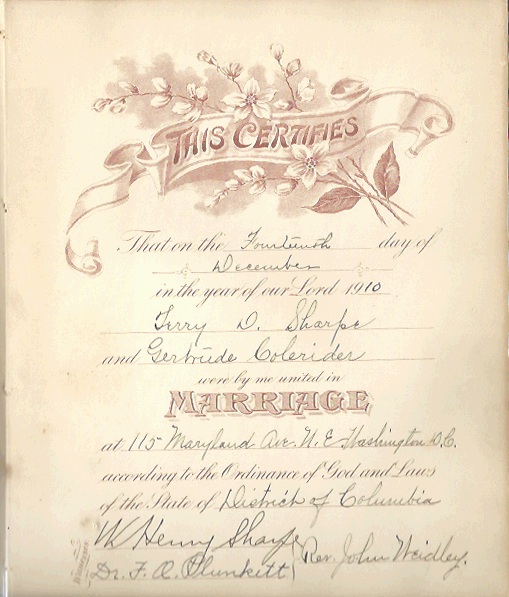 THIS CERTIFIES
That on the Fourteenth day of
December
in the year of our Lord 1910
Terry D. Sharpe
and Gertrude Colerider
were by me united in
MARRIAGE
at 115 Maryland Ave. N.E. Washington D.C.
according to the Ordinance of God and Laws
of the State of District of Columbia
W Henry Sharpe
Dr. F. A. Plunkett Rev. John Weidley.